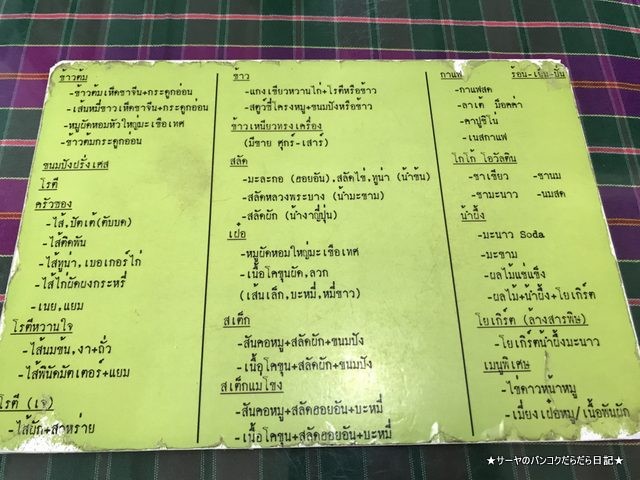 ข้าวต้ม
-ข้าวต้มเห็ดชาจีน+กระดูกอ่อน
-เส้นหมี่ขาวเห็ดชาจีน+กระดูกอ่อน
-หมูผัดหอมหัวใหญ่มะเขือเทศ
-ข้าวต้มกระดูกอ่อน
ขนมปังฝรั่งเศส
โรตี
ครัวซอง
-ไส้,ปัตเต้(ตับบด)
-ไส้ติดพัน
-ไส้ทูน่า,เบอเกอร์ไก่
-ไส้ไก่ผัดผงกระหรี่
-เนย,แยม
โรตีหวานใจ
-ไส้นมข้น,งา+ถั่ว
-ไส้พีนัดมัตเตอร์+แยม
โรตี (เจ)
-ไส้ผัก+สาหร่าย
ข้าว
-แกงเขียวหวานไก่+โรตีหรือข้าว
-สตูว์ซี่โครงหมู+ขนมปังหรือข้าว
ข้าวเหนียวทรงเครื่อง
(มีขาย ศุกร์-เสาร์)
สลัด
-มะละกอ (ฮอยอัน),สลัดไข่,ทูน่า (น้ำข้น)
-สลัดหลวงพระบาง (น้ำมะขาม)
-สลัดผัก (น้ำงาญี่ปุ่น)
เฝอ
-หมูผัดหอมใหญ่มะเขือเทศ
-เนื้อโคขุนผัด,ลวก
(เส้นเล็ก,บะหมี่,หมี่ขาว)
สเต็ก
-สันคอหมู+สลัดผัก+ขนมปัง
-เนื้อโคขุน+สลัดผัก+ขนมปัง
สเต็กแมโขง
-สันคอหมู+สลัดฮอยอัน+บะหมี่
-เนื้อโคขุน+สลัดฮอยอัน+บะหมี่
กาแฟ ร้อน-เย็น-ปั่น
-กาแฟสด
-ลาเต้ ม็อคคา
-คาปูชิโน่
-เนสกาแฟ
โกโก้ โอวัลติน
-ชาเขียว -ชานม
-ชามะนาว -นมสด
น้ำผึ้ง
-มะนาว Soda
-มะขาม
-ผลไม้แช่แข็ง
-ผลไม้+น้ำผึ้ง+โยเกิร์ต
โยเกิร์ต (ล้างสารพิษ)
-โยเกิร์ตน้ำผึ้งมะนาว
เมนูพิเศษ
-ไข่ดาวหน้าหมู
-เมี่ยงเฝอหมู/เนื้อพันผัก
★サーヤのバンコクだらだら日記★